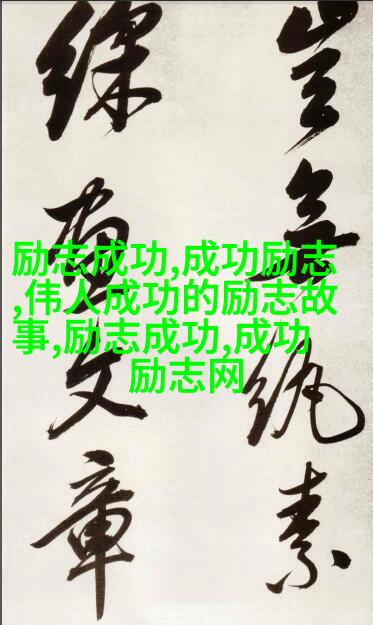 豈無紈素
綵畫文章
励志成功,成功励志
,伟人成功的励志故
事,励志成功,成功
励志网